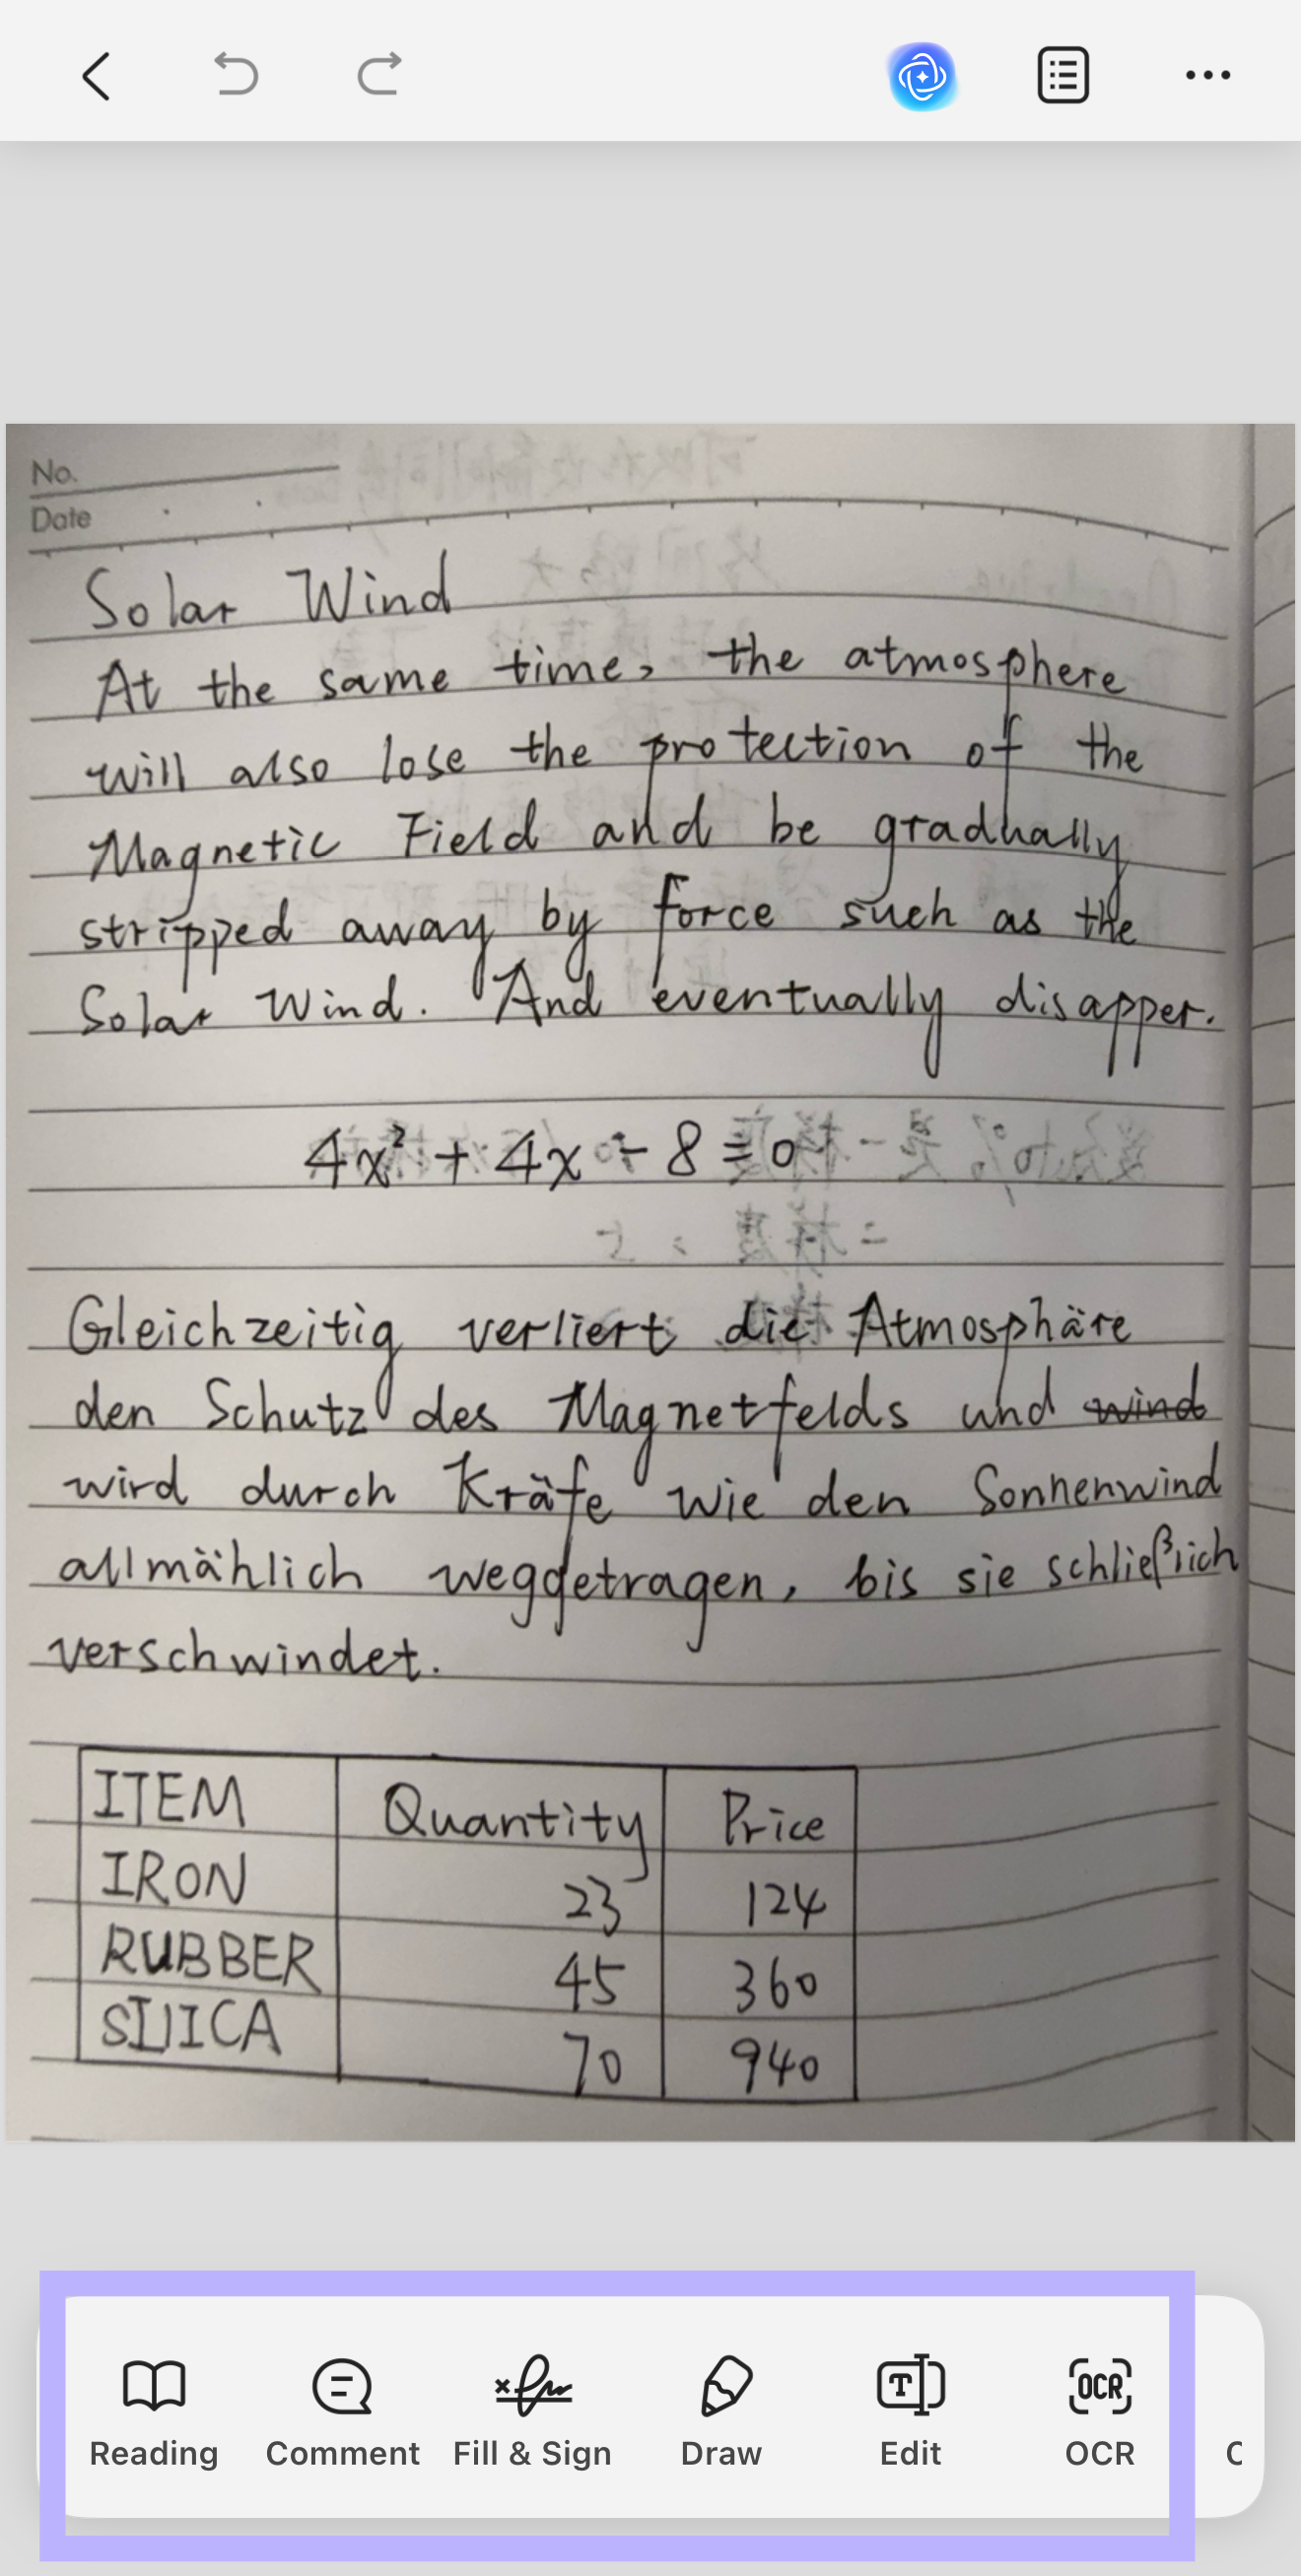 No.
Date
Solar Wind
At the same time, the atmosphere
will also lose the protection of the
Magnetic Field and be gradually
stripped away by force such as the
Solar Wind. And eventually disapper.
4x² + 4x - 8 = 0
Gleichzeitig verliert die Atmosphäre
den Schutz des Magnetfelds und wind
wird durch Kräfe wie den Sonnenwind
allmählich weggetragen, bis sie schließlich
verschwindet.
ITEM Quantity Price
IRON 23 124
RUBBER 45 360
SILICA 70 940
Reading Comment Fill & Sign Draw Edit OCR